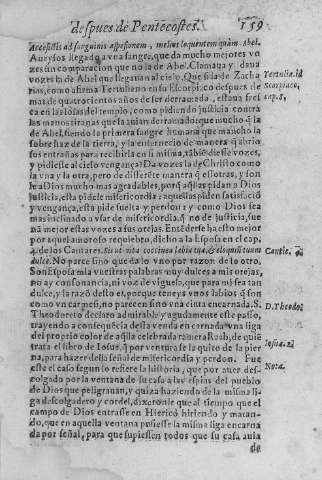 despues de Pentecostes. 159
Accessistis ad sanguinis aspersionem, melius loquentem quàm Abel.
Aueysos llegado a vna sangre, que da mucho mejores vo
zes sin comparacion que no la de Abel. Clamaua y daua
vozes la de Abel que llegauan al cielo. Que si la de Zacha
rias, como afirma Tertuliano en su Escorpi. co despues de
mas de quatrocientos años de ser derramada, estaua fresca
en las losas del templo, como pidiendo justicia contra
las manos tiranas que la auian derramado: que mucho q̃ la
de Abel, siendo la primera sangre humana que mancho la
sobre haz de la tierra, y la enternecio de manera q̃ abrio
sus entrañas para recibirla en si misma, tãbiẽ diesse vozes,
y pidiesse al cielo vengança? Da vozes la de Christo como
la vna y la otra, pero de diferẽte manera q̃ ellotras, y son
le a Dios mucho mas agradables, porq̃ aq̃llas pidan a Dios
justicia, esta pidele misericordia: aquellas piden satisfaciõ
y vengança, esta pide suelta y perdon: y como Dios sea
mas inclinado a vsar de misericordia, q̃ no de justicia, sue
na mejor estas vozes a sus orejas. Entẽderse ha esto mejor
por aquel amoroso requiebro, dicho a la Esposa en el cap.
4. de los Cantares. Sicut vitta coccinea labia tua, & eloquium tuum
dulce. No parece sino que da lo vno por razon de lo otro.
Son Esposa mia vuestras palabras muy dulces a mis orejas,
no ay consonancia, ni voz de viguela, que para mi sea tan
dulce, y la razõ desto es, porque teneys vnos labios q̃ son
como vn carmesi, no parecen sino vna cinta encarnada. S.
Theodoreto declaro admirable y agudamente este passo,
trayendo a consequẽcia dessa venda encarnada vna liga
del proprio color de aq̃lla celebrada ramera Raab, de quiẽ
trata el libro de Iosue, q̃ por ventura se la quito de la pier
na, para hazer dessa señal de misericordia y perdon. Fue
este el caso segun lo refiere la historia, que por auer des-
colgado por la ventana de su casa a las espias del pueblo
de Dios que peligrauan, y quiza haziendo de la misma li
ga descolgadero y cordel, dixeronle que al tiempo que el
campo de Dios entrasse en Hiericó hiriendo y matan-
do, que en aquella ventana pusiesse la misma liga encarna
da por señal, para que supiessen todos que su casa auia
de
Tertulia. id
Scorpiaco,
cap. 8.
Cantic. 4
D. Theodol
Iosue. 2
Nota.